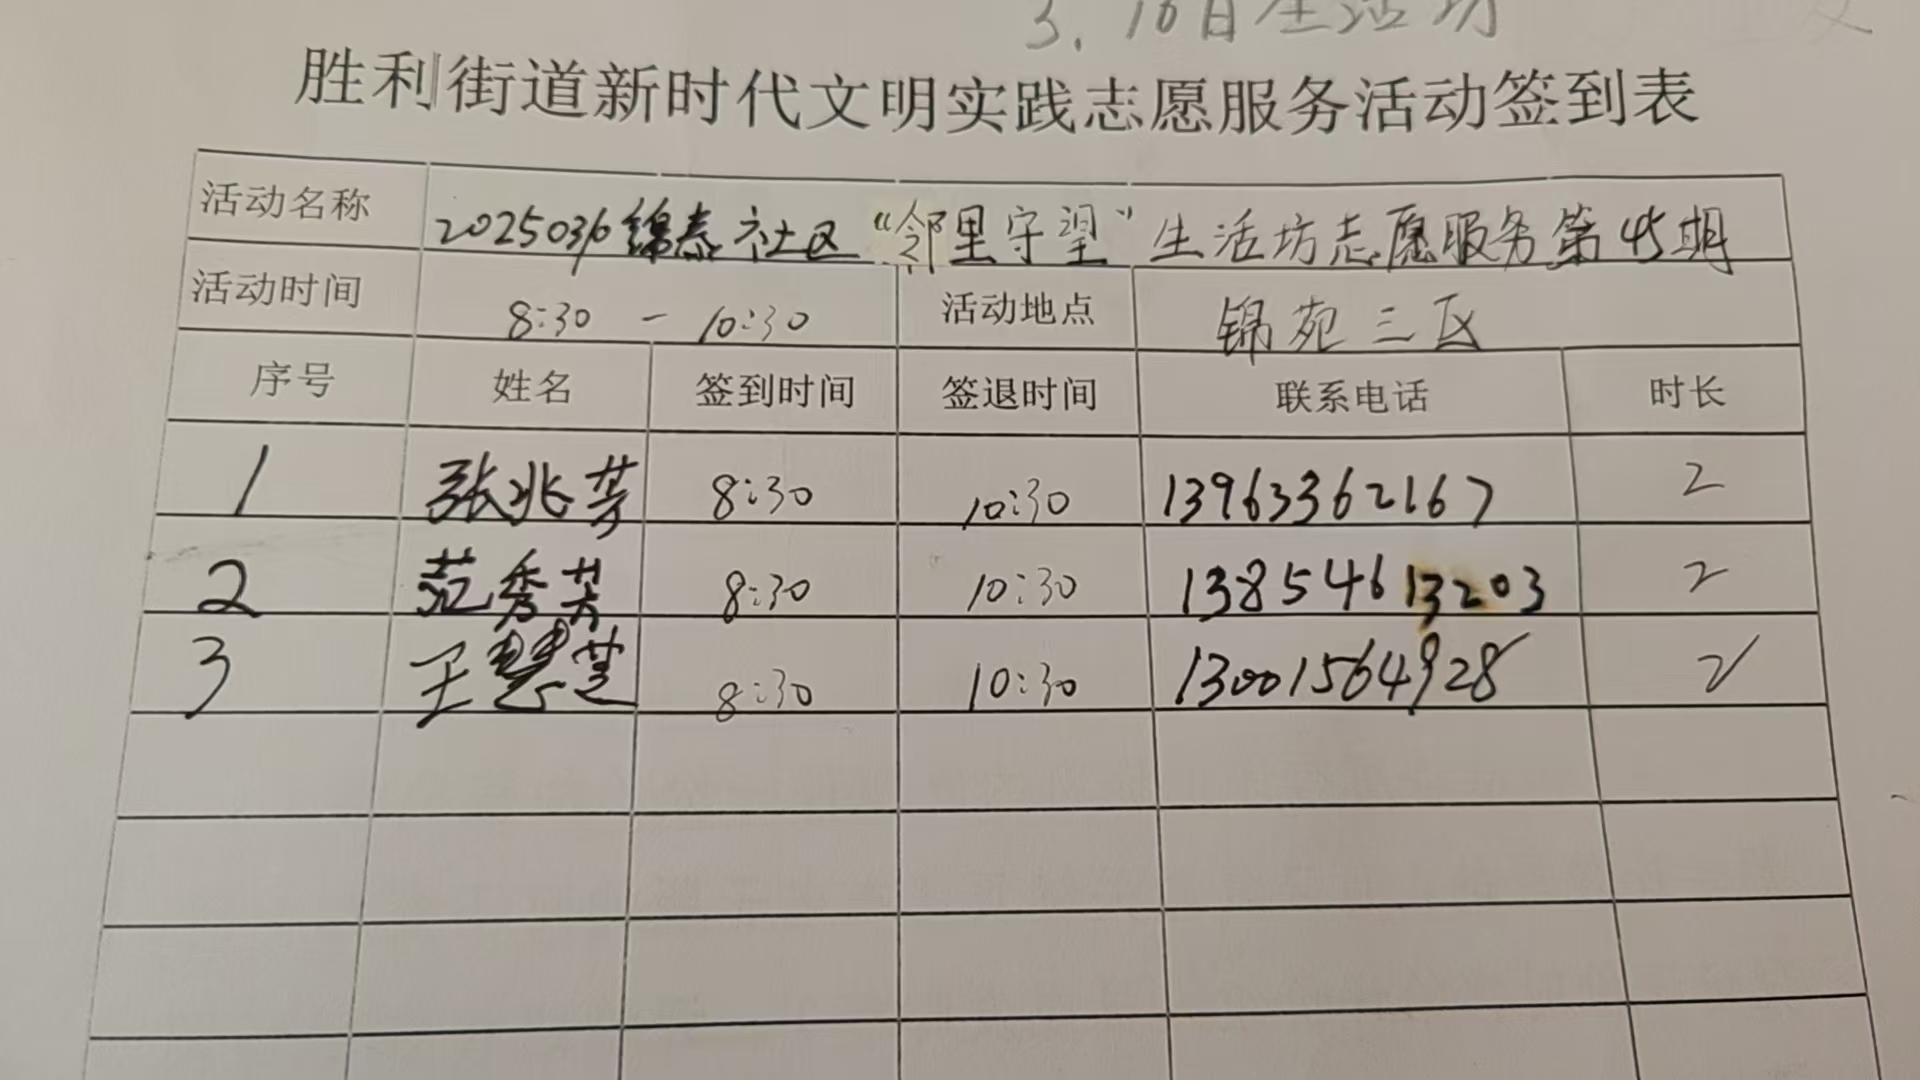 3.16日生活坊
胜利街道新时代文明实践志愿服务活动签到表
活动名称 20250316锦泰社区“邻里守望”生活坊志愿服务第45期
活动时间 8:30 - 10:30 活动地点 锦苑三区
序号 姓名 签到时间 签退时间 联系电话 时长
1 张兆芳 8:30 10:30 13963362167 2
2 范秀芳 8:30 10:30 13854613203 2
3 王慧芝 8:30 10:30 13001564928 2